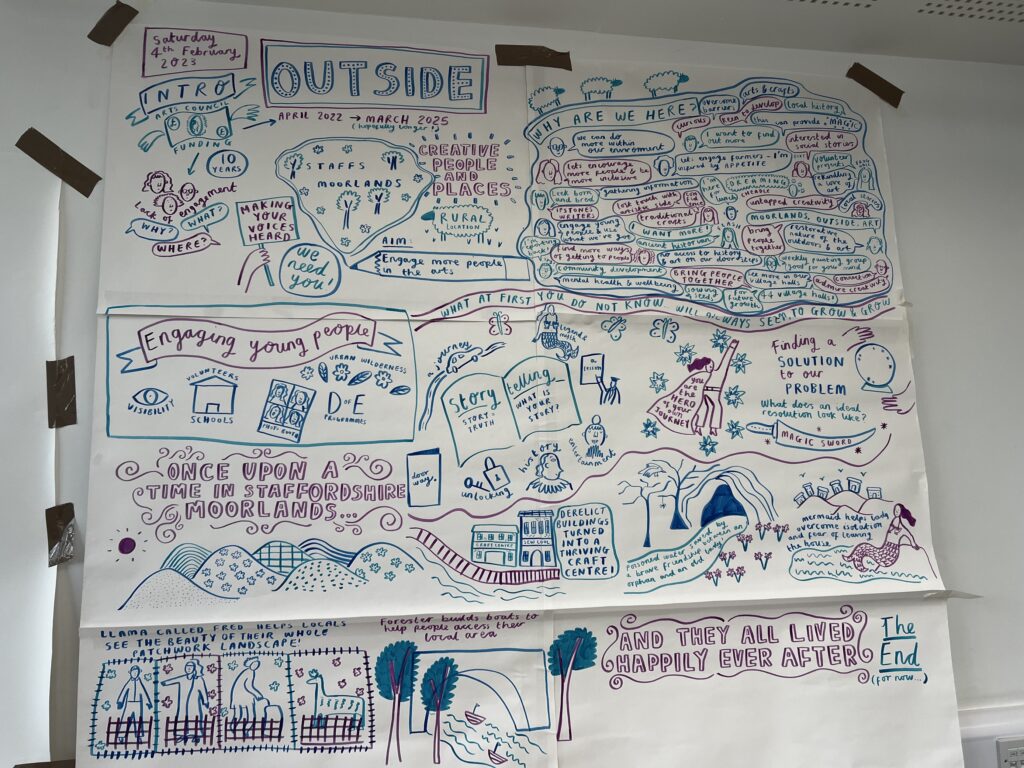 Saturday
4th February
2023
OUTSIDE
INTRO
ARTS COUNCIL
FUNDING
APRIL 2022 → MARCH 2025
(hopefully longer!)
10
YEARS
Lack of engagement
WHY?
WHAT?
WHERE?
MAKING
YOUR
VOICES
HEARD
We
need
you!
STAFFS
MOORLANDS
CREATIVE
PEOPLE
AND
PLACES
RURAL
LOCATION
AIM:
Engage more people
in the arts
WHY ARE WE HERE?
overcome
barriers
arts & crafts
curious
keen to develop
local history
this can provide MAGIC
we can do
more within
our environment
I want to find
out more
interested in
social stories
let's encourage
more people & be
more inclusive
let's engage farmers - I'm
inspired by APPETITE
volunteer
Leek born
and bred
gathering information
DREAMING
untapped creativity
rekindling
love of
lost touch with
artistic side
traditional
crafts
MOORLANDS. OUTSIDE. ART
engage young
people & use
what we've got
I WANT MORE
ancient historian
bring
people
together
restorative
nature of the
outdoors & art
find more ways
of getting to people
no access to history
& art on our doorstep
weekly painting group
good for your mind
community development
BRING PEOPLE
TOGETHER
see more in our
village halls
connection
admire creativity
mental health & wellbeing
sowing a
seed
for
future
growth
44 village halls!
WHAT AT FIRST YOU DO NOT KNOW WILL ALWAYS SEED, TO GROW & GROW
Engaging young people
VISIBILITY
VOLUNTEERS
SCHOOLS
PHOTO BOOTH
D of E
PROGRAMMES
URBAN WILDERNESS
a journey
legends
& myth
Story
telling
STORY =
TRUTH
WHAT IS
YOUR
STORY?
door
way.
unlocking
history
entertainment
you
are the
HERO
of your
own
JOURNEY
Finding a
SOLUTION
to our
PROBLEM
What does an ideal
resolution look like?
MAGIC SWORD
ONCE UPON A
TIME IN STAFFORDSHIRE
MOORLANDS...
CRAFT CENTRE
SEW COOL
DERELICT
BUILDINGS
TURNED
INTO A
THRIVING
CRAFT
CENTRE!
Poisoned water saved by
a brave friendship between an
orphan and an old lady
mermaid helps lady
overcome isolation
and fear of leaving
the house.
LLAMA CALLED FRED HELPS LOCALS
SEE THE BEAUTY OF THEIR WHOLE
PATCHWORK LANDSCAPE!
Forester builds boats to
help people access their
local area
AND THEY ALL LIVED
HAPPILY EVER AFTER
The
End
(for now...)